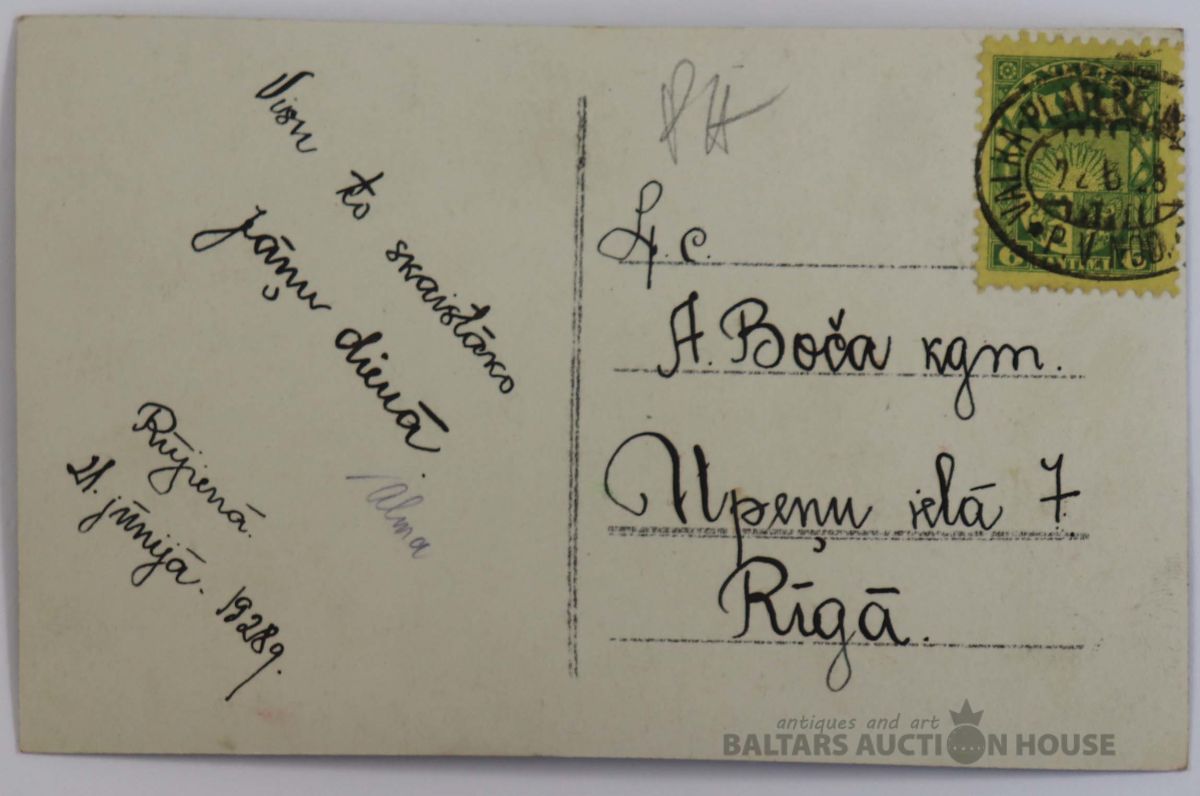 Visu
to
skaistāko
Jāņu dienā.
Alma
Rūjienā.
21. jūnijā. 1928g.
Ļ. c.
A. Boča kgm.
Upeņu ielā 7.
Rīgā.
VALKA-PL
22 6 28
P.V.
6 6
antiques and art
BALTARS AUCTION HOUSE